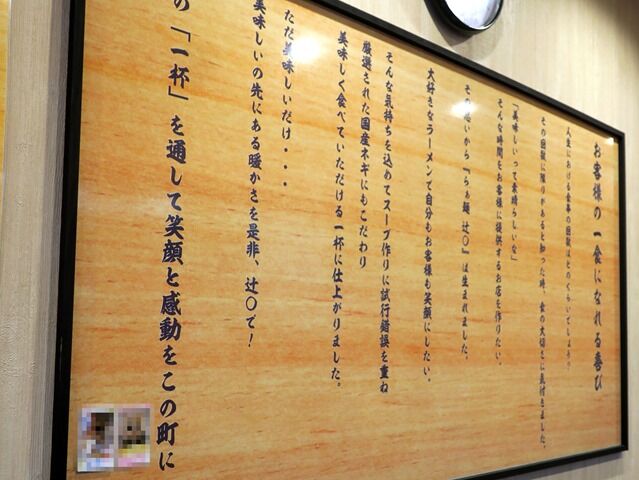 お客様の一食になれる喜び
人生における食事の回数はどのくらいでしょう？
その回数に限りがあると知った時、食の大切さに気付きました。
「美味しいって素晴らしいな」
そんな時間をお客様に提供するお店を作りたい。
その思いから『らぁ麺 辻〇』は生まれました。
大好きなラーメンで自分もお客様も笑顔にしたい。
そんな気持ちを込めてスープ作りに試行錯誤を重ね
厳選された国産ネギにもこだわり
美味しく食べていただける一杯に仕上がりました。
ただ美味しいだけ・・・
美味しいの先にある暖かさを是非、辻〇で！
の「一杯」を通して笑顔と感動をこの町に